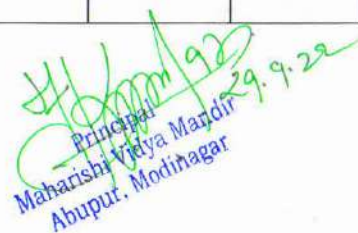 29.9.22
Principal
Maharishi Vidya Mandir
Abupur, Modinagar